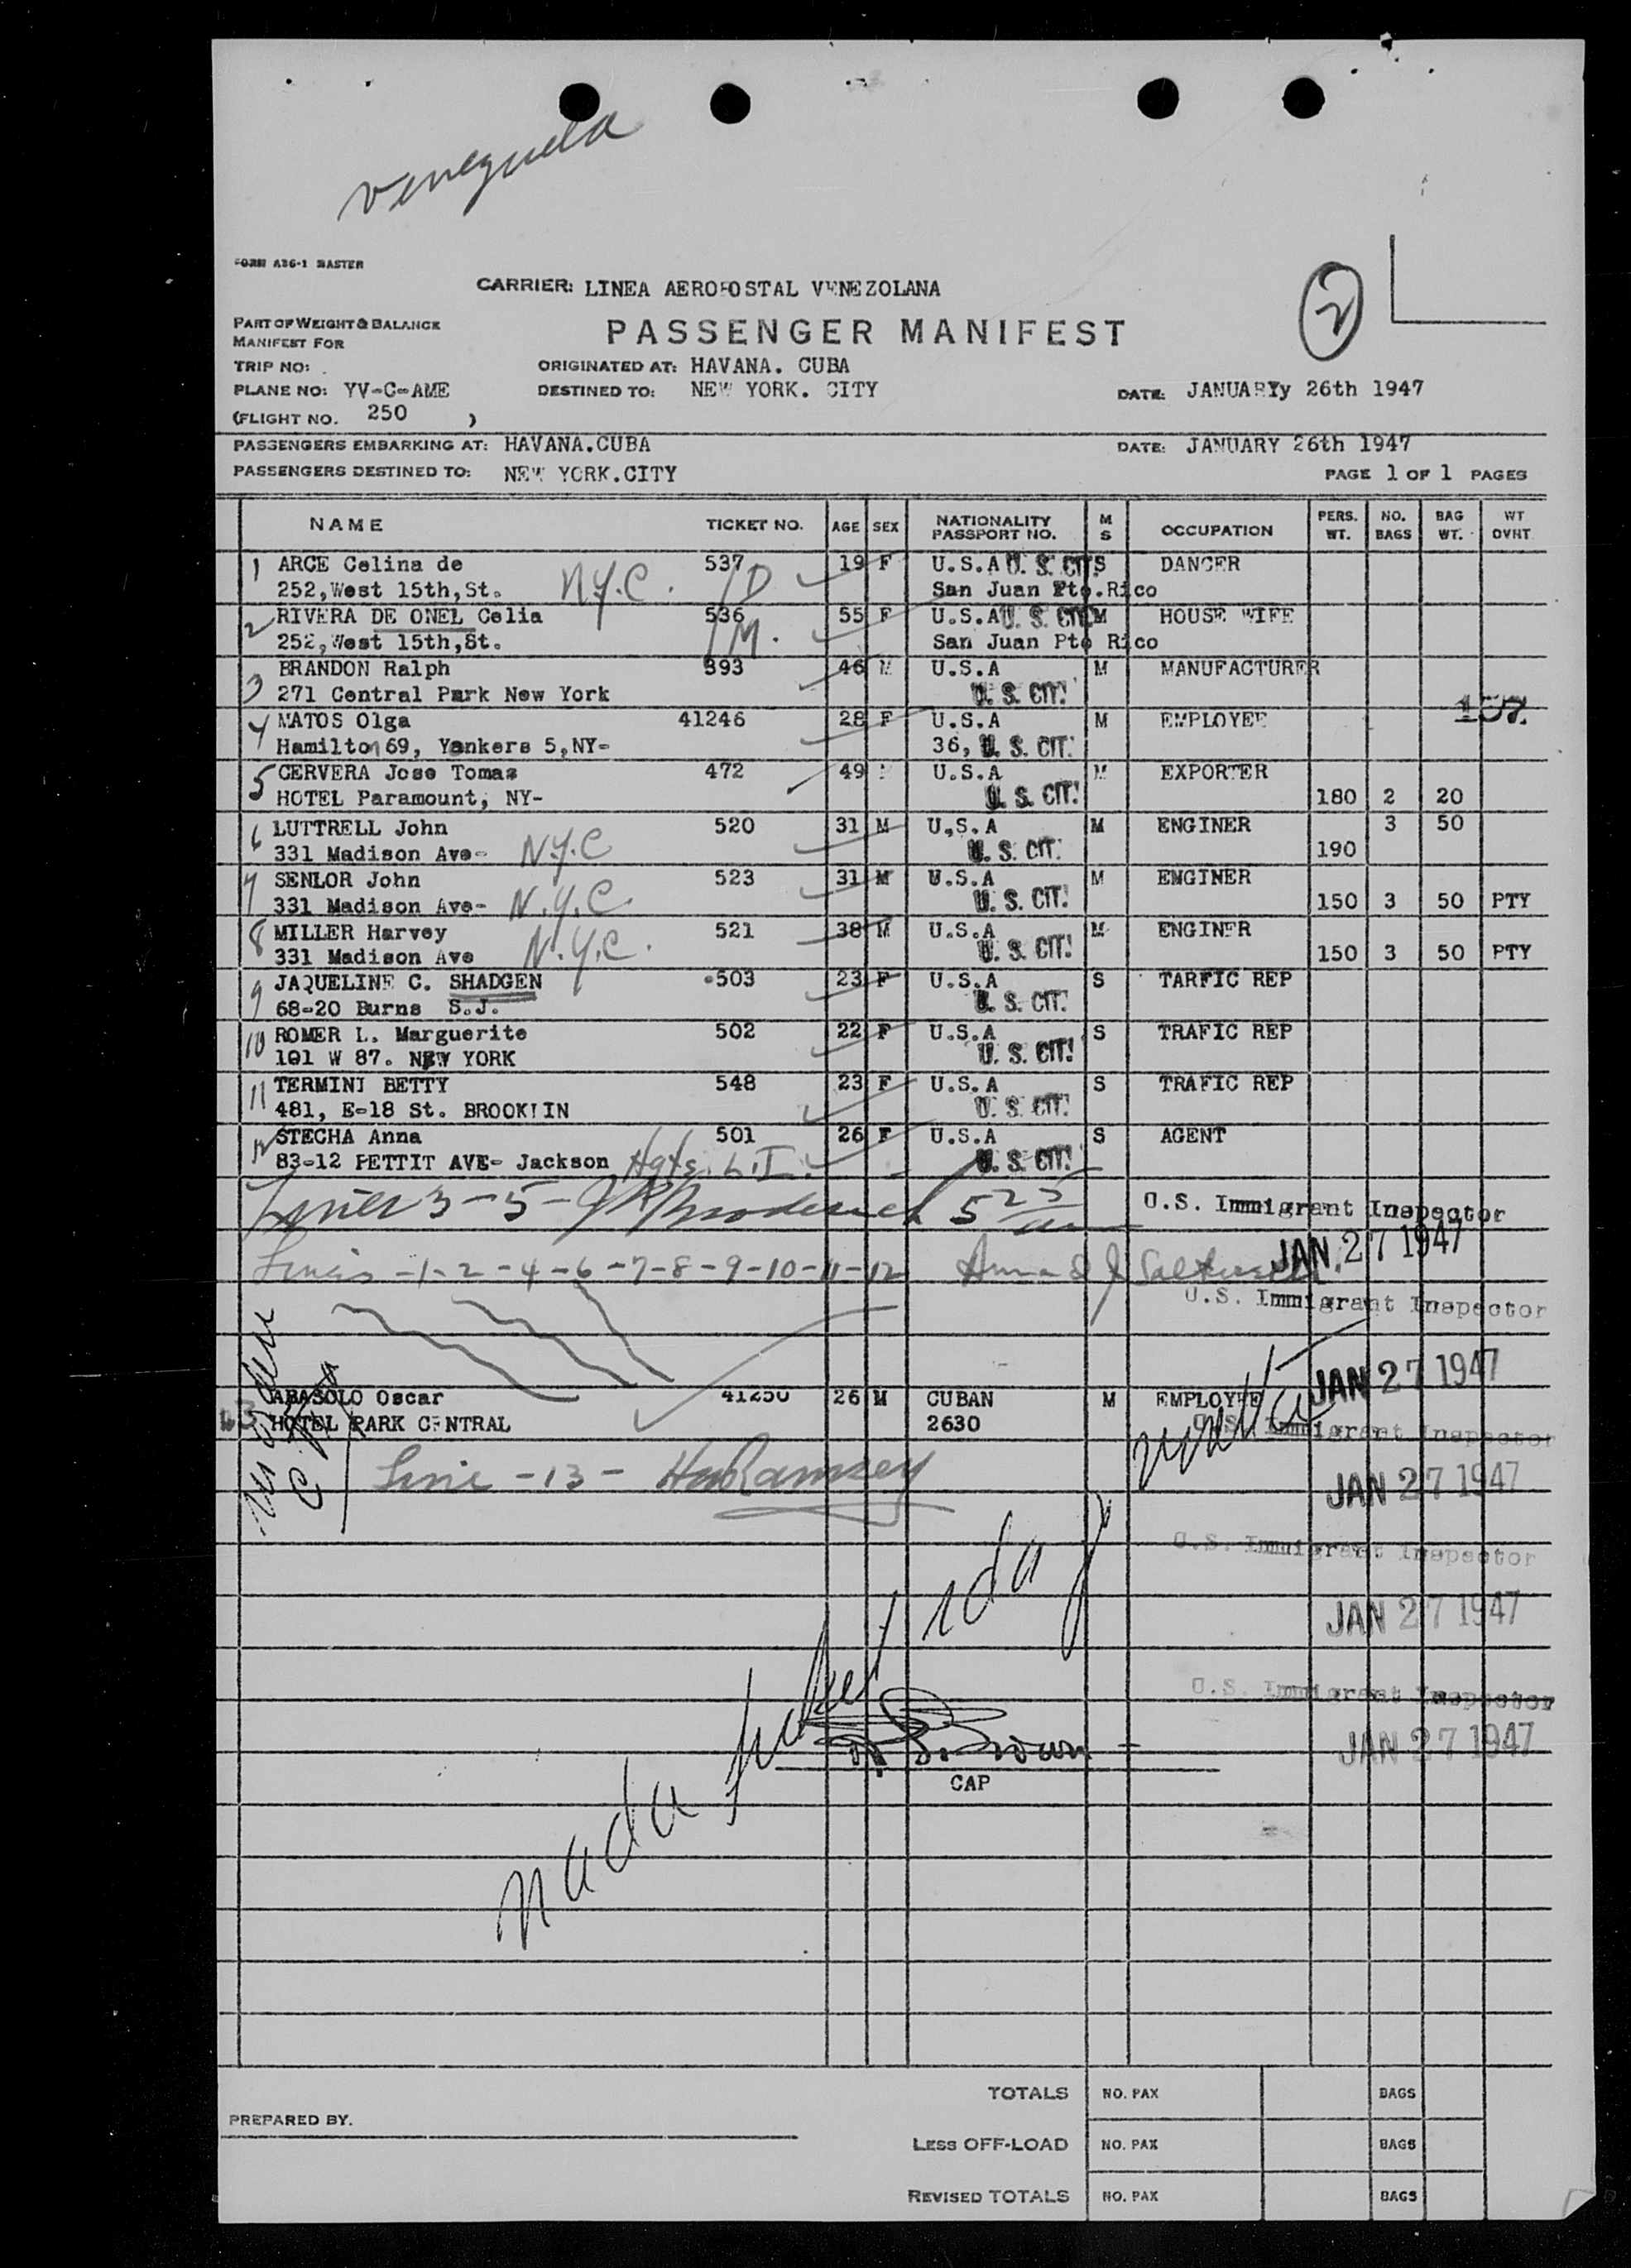 Venezuela
FORM A36-1 MASTER
CARRIER: LINEA AEROPOSTAL VENEZOLANA
2
PART OF WEIGHT & BALANCE
MANIFEST FOR
PASSENGER MANIFEST
TRIP NO:
ORIGINATED AT: HAVANA. CUBA
PLANE NO: YV-C-AME
DESTINED TO: NEW YORK. CITY
DATE: JANUARYy 26th 1947
(FLIGHT NO. 250 )
PASSENGERS EMBARKING AT: HAVANA.CUBA
DATE: JANUARY 26th 1947
PASSENGERS DESTINED TO: NEW YORK.CITY
PAGE 1 OF 1 PAGES
NAME TICKET NO. AGE SEX NATIONALITY PASSPORT NO. M S OCCUPATION PERS. WT. NO. BAGS BAG WT. WT OVNT
1 ARCE Celina de 537 19 F U.S.A U. S. CIT S DANCER
252,West 15th,St. N.Y.C. 1D San Juan Pto.Rico
2 RIVERA DE ONEL Celia 536 55 F U.S.A U. S. CIT M HOUSE WIFE
252,West 15th,St. 1M. San Juan Pto Rico
3 BRANDON Ralph 393 46 M U.S.A M MANUFACTURER
271 Central Park New York U. S. CIT!
4 MATOS Olga 41246 28 F U.S.A M EMPLOYEE 157.
Hamilton 69, Yonkers 5,NY- 36, U. S. CIT.
5 CERVERA Jose Tomas 472 49 M U.S.A M EXPORTER
HOTEL Paramount, NY- U. S. CIT! 180 2 20
6 LUTTRELL John 520 31 M U.S.A M ENGINER 3 50
331 Madison Ave- N.Y.C U. S. CIT. 190
7 SENLOR John 523 31 M U.S.A M ENGINER
331 Madison Ave- N.Y.C. U. S. CIT! 150 3 50 PTY
8 MILLER Harvey 521 38 M U.S.A M ENGINER
331 Madison Ave N.Y.C. U. S. CIT! 150 3 50 PTY
9 JAQUELINE C. SHADGEN 503 23 F U.S.A S TARFIC REP
68-20 Burns S.J. U. S. CIT.
10 ROMER L. Marguerite 502 22 F U.S.A S TRAFIC REP
101 W 87. NEW YORK U. S. CIT!
11 TERMINI BETTY 548 23 F U.S.A S TRAFIC REP
481, E-18 St. BROOKLIN U. S. CIT!
12 STECHA Anna 501 26 F U.S.A S AGENT
83-12 PETTIT AVE- Jackson Hgts. L.I. U. S. CIT!
Lines 3-5- 5 25
U.S. Immigrant Inspector
JAN 27 1947
Lines -1-2-4-6-7-8-9-10-11-12
U.S. Immigrant Inspector
JAN 27 1947
ABASOLO Oscar 41250 26 M CUBAN M EMPLOYEE
13 HOTEL PARK CENTRAL 2630
U.S. Immigrant Inspector
Line -13- Ramsey
JAN 27 1947
U.S. Immigrant Inspector
JAN 27 1947
U.S. Immigrant Inspector
JAN 27 1947
Brown
CAP
TOTALS NO. PAX BAGS
PREPARED BY.
LESS OFF-LOAD NO. PAX BAGS
REVISED TOTALS NO. PAX BAGS